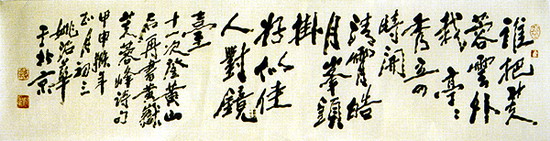 誰把芙
蓉雲外
栽亭亭
秀立四
時開
清霄皓
月峯頭
掛
好似佳
人對鏡
臺
十一次登黄山
后再書黄嶽
芙蓉峰诗句
甲申猴年
正月初三
姚治華
于北京